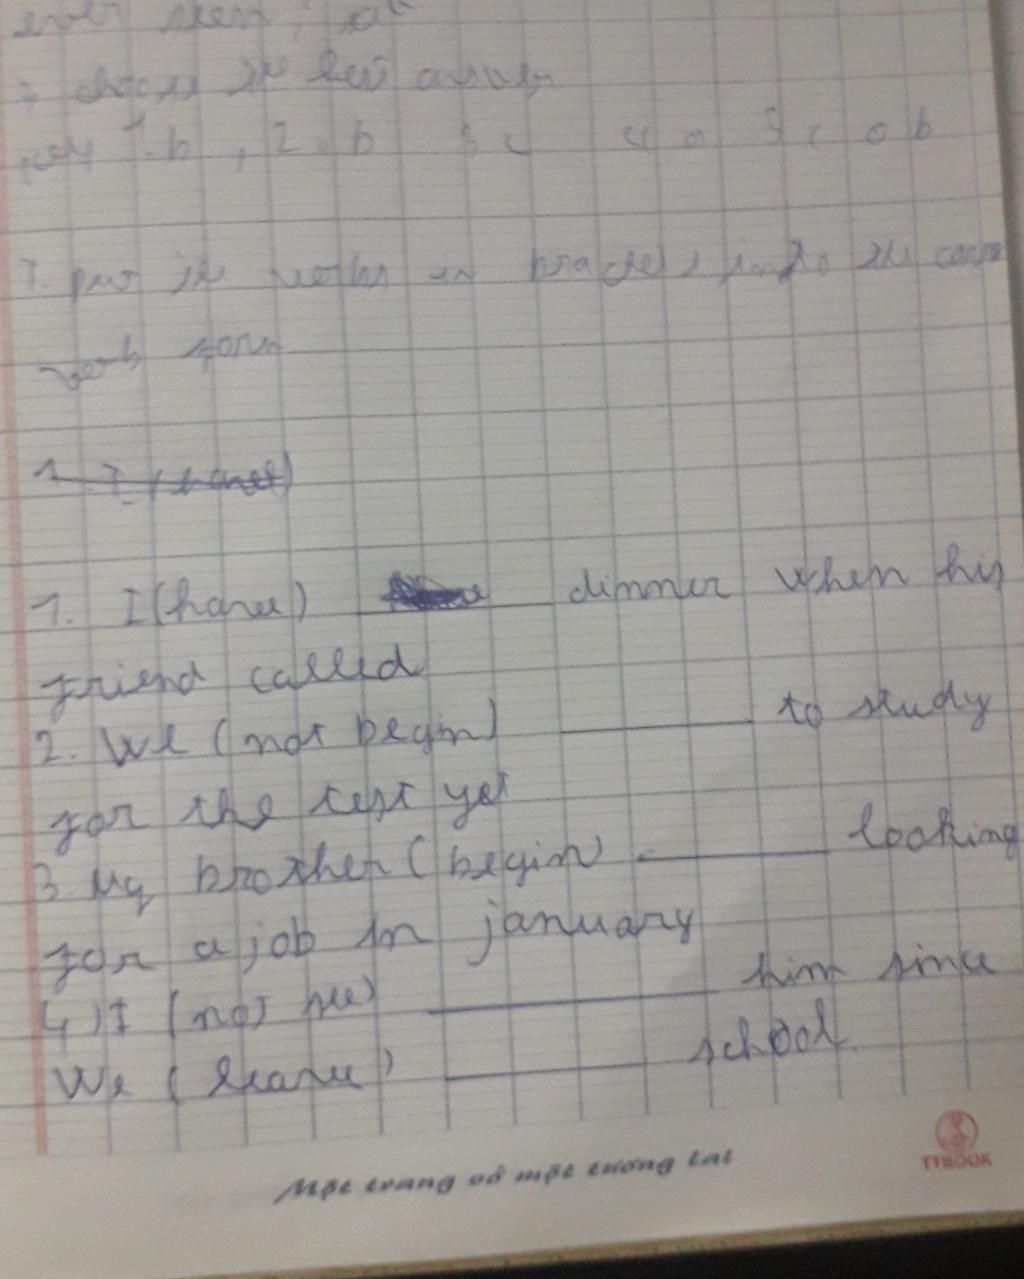 choose the best answer
key 1.b, 2.b 3c 4 a 5 c 6 b
put the verbs in brackets into the
verb form
1. I (have)
1. I (have) dinner when his
friend called
2. We (not begin) to study
for the test yet
3. My brother (begin) looking
for a job in january
4) I (not see) him since
We (leave) school.
Một trang vở một tương lai
TTBOOK